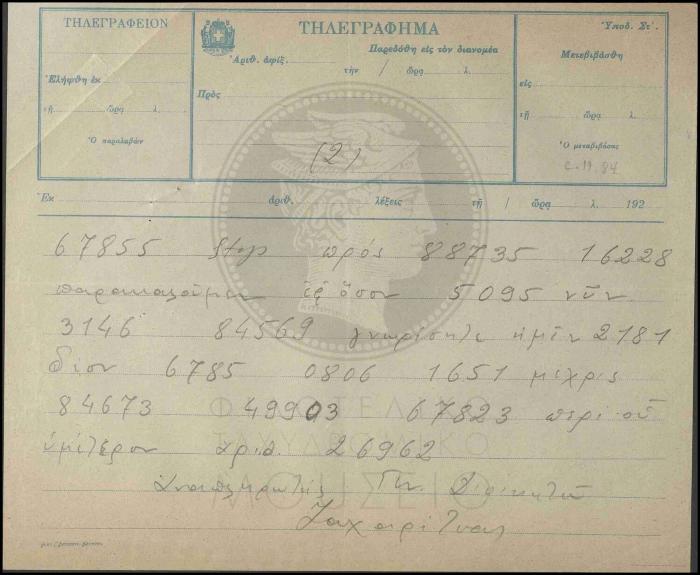 ΤΗΛΕΓΡΑΦΕΙΟΝ
Ἐλήφθη ἐκ
τῇ ὥρᾳ λ.
Ὁ παραλαβών
ΤΗΛΕΓΡΑΦΗΜΑ
Ἀριθ. ἀφίξ.
Παρεδόθη εἰς τὸν διανομέα
τὴν / ὥρᾳ λ.
Πρὸς
(2)
Ὑποδ. Στ'.
Μετεβιβάσθη
εἰς
τῇ ὥρᾳ λ.
Ὁ μεταβιβάσας
c.11.84
Ἐκ ἀριθ. λέξεις τῇ / ὥρᾳ λ. 192
67855 Stop πρός 88735 16228
παρακαλοῦμεν ἐφ ὅσον 5095 νῦν
3146 84569 γνωρίσητε ἡμῖν 2181
δέον 6785 0806 1651 μέχρις
84673 49903 67823 περί οὗ
ὑμέτερον ἀριθ. 26962
Ἀναπληρωτής Γεν. Διοικητοῦ
ΦΙΛΟΤΕΛΙΚΟ
ΤΑΧΥΔΡΟΜΙΚΟ
ΜΟΥΣΕΙΟ